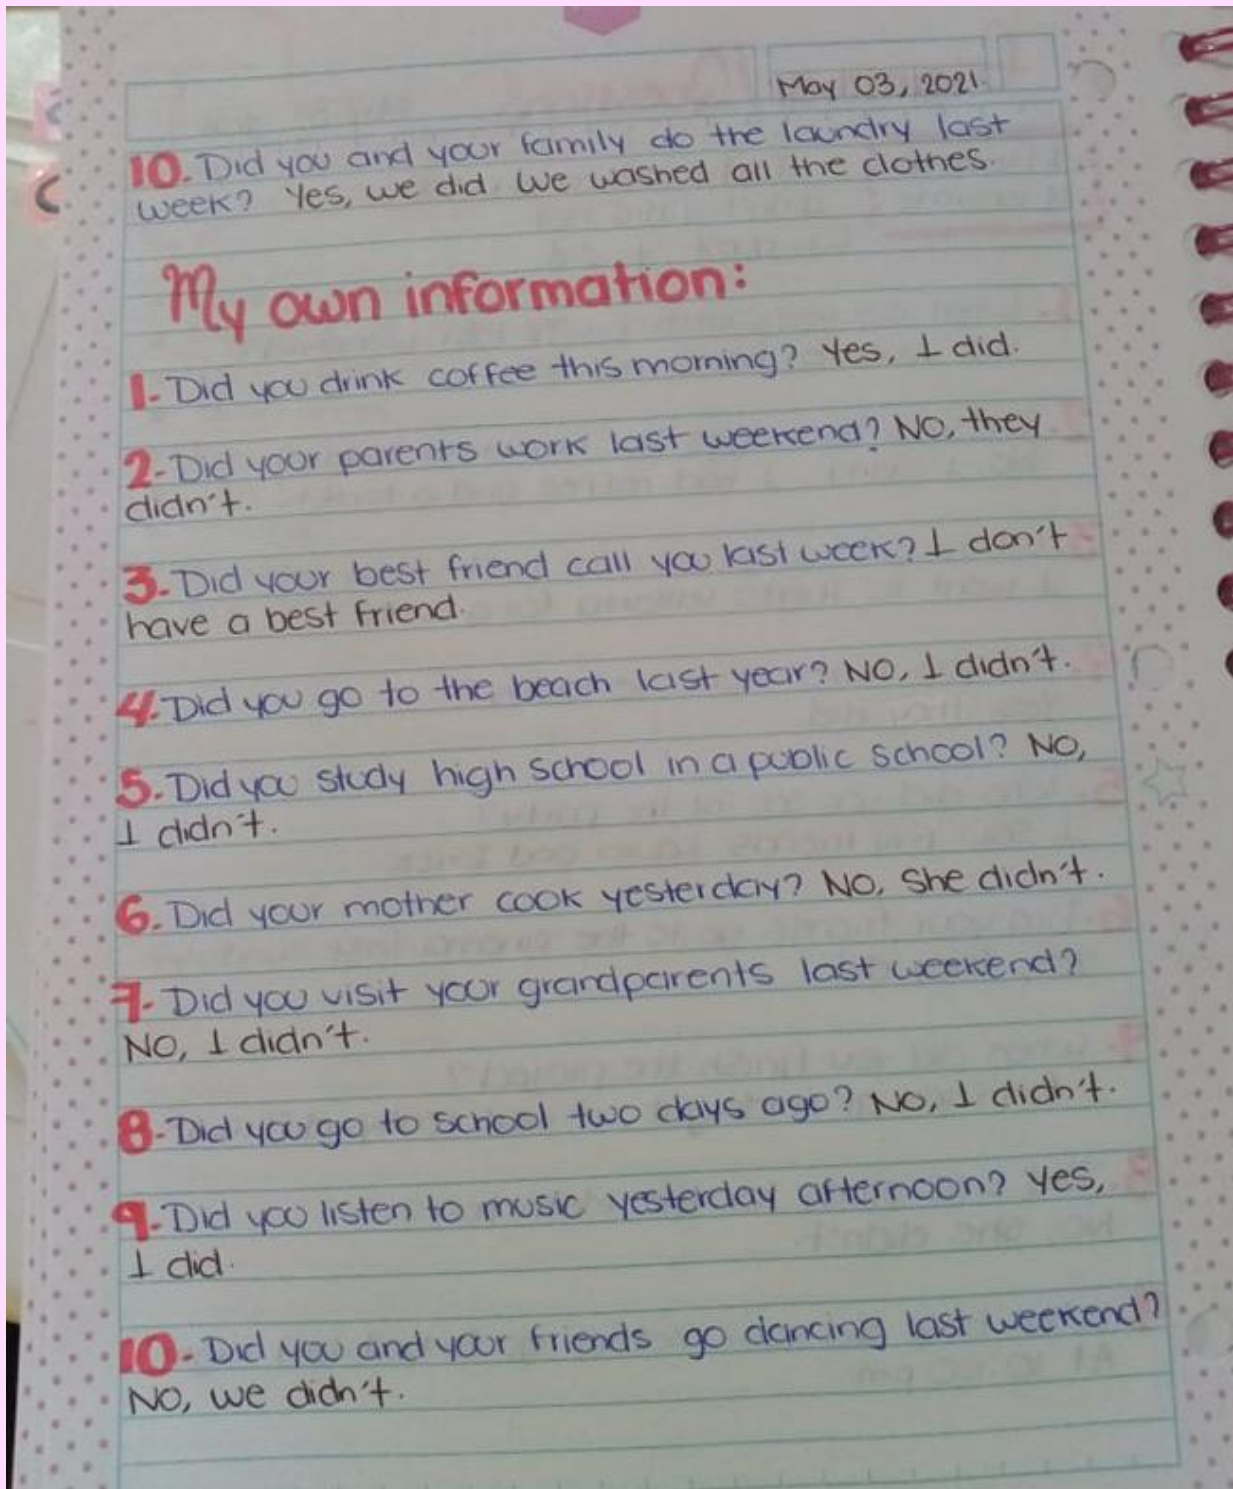 May 03, 2021.
10. Did you and your family do the laundry last
week? Yes, we did. We washed all the clothes.
My own information:
1- Did you drink coffee this morning? Yes, I did.
2- Did your parents work last weekend? No, they
didn't.
3- Did your best friend call you last week? I don't
have a best friend.
4. Did you go to the beach last year? No, I didn't.
5. Did you study high school in a public school? No,
I didn't.
6. Did your mother cook yesterday? No, she didn't.
7- Did you visit your grandparents last weekend?
No, I didn't.
8- Did you go to school two days ago? No, I didn't.
9- Did you listen to music yesterday afternoon? Yes,
I did.
10- Did you and your friends go dancing last weekend?
No, we didn't.